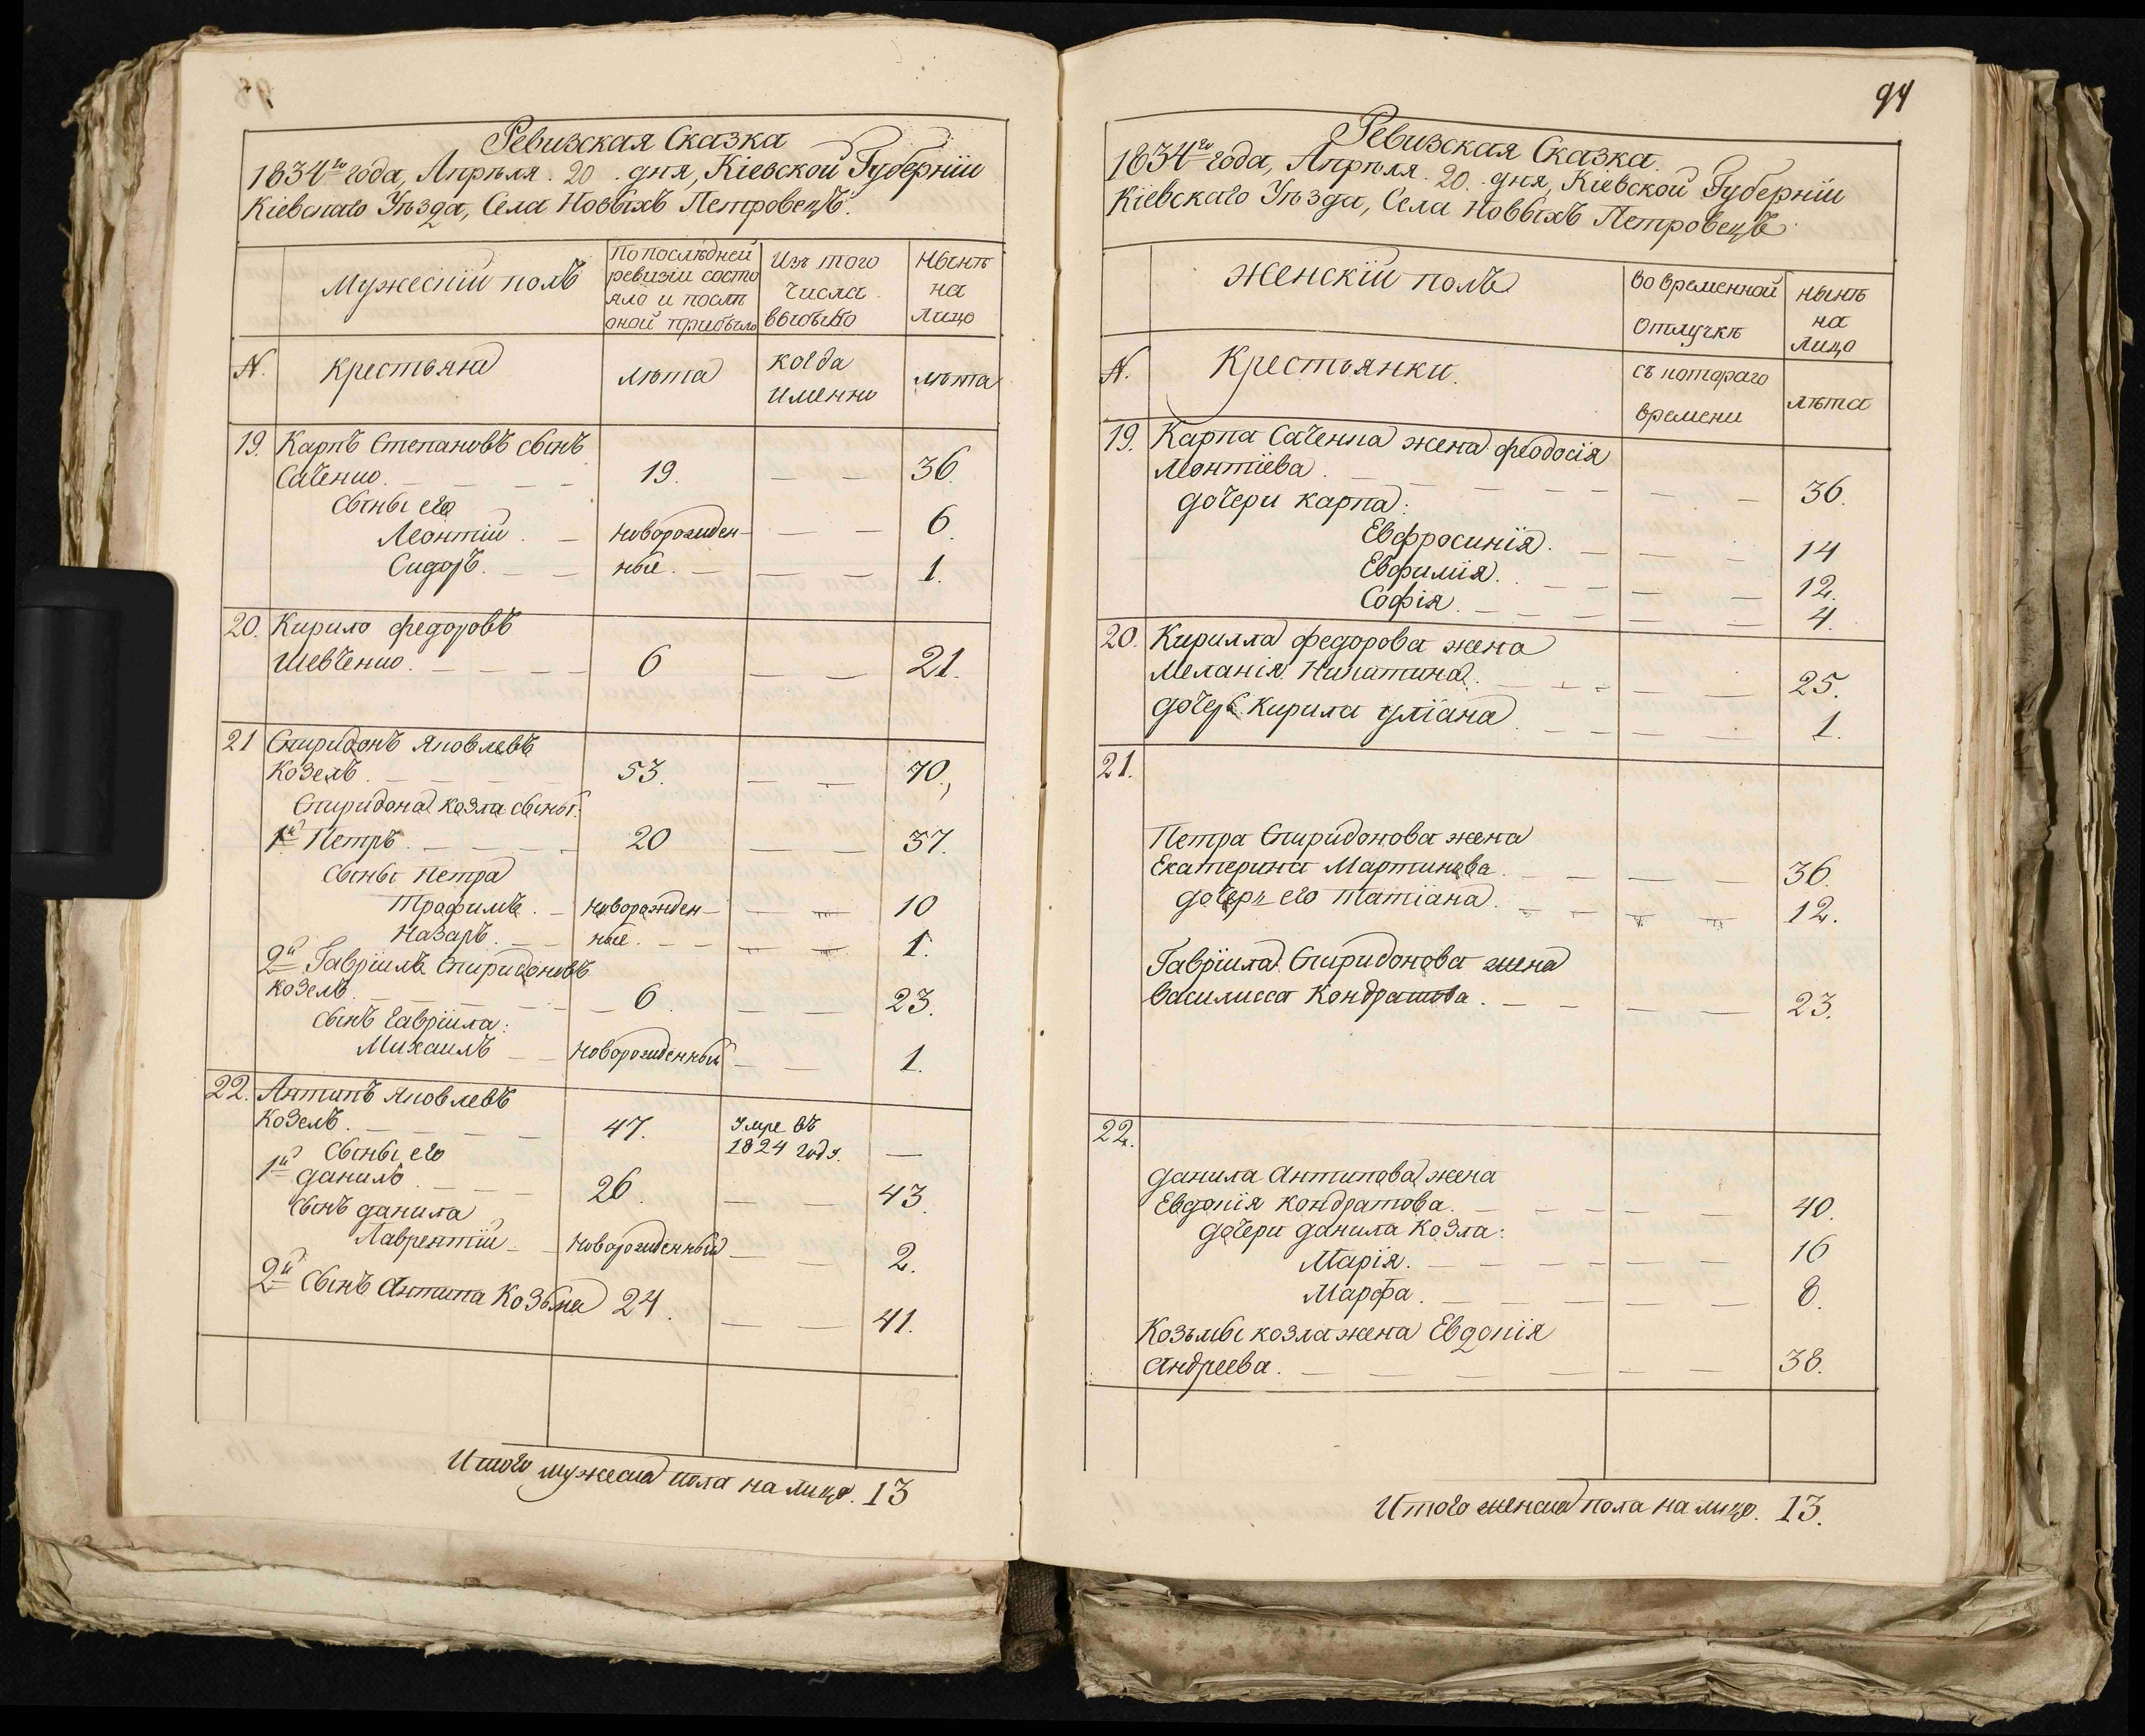 Ревизская Сказка
1834го года, Апрѣля. 20. дня, Кіевской Губерніи
Кіевскаго Уѣзда, Села Новыхъ Петровецъ.
Мужескій полъ
По послѣдней ревизіи состояло и послѣ оной прибыло
Изъ того числа выбыло
Нынѣ на лицо
N. Крестьяне
лѣта
когда именно
лѣта
19. Карпъ Степановъ сынъ
Саченко. 19. — — 36.
Сыны его
Леонтій. — Новорожден- — — 6.
Сидоръ. — — ные. — — — 1.
20. Кирило Федоровъ
Шевченко. — — — — 6 — — 21.
21 Спиридонъ Яковлевъ
Козелъ. — — — 53. — — 70.,
Спиридона козла сыны:
1й Петръ. — — — — 20 — — 37.
Сыны Петра
Трофимъ. — Новорожден- — — 10
Назаръ. — — ные. — — — — 1.
2й Гавріилъ Спиридоновъ
Козелъ. — — — — — 6. — — 23.
Сынъ Гавріила:
Михаилъ — — Новорожденный — — 1.
22. Антипъ Яковлевъ
Козелъ. — — — — 47. Умре въ
1824 году. —
Сыны его
1й Данило. — — — 26. — — 43.
Сынъ Данила
Лаврентій — — Новорожденный — — 2.
2й Сынъ Антипа Козьма 24. — — 41.
Итого мужеска пола на лицо. 13
94
Ревизская Сказка.
1834го года, Апрѣля. 20. дня, Кіевской Губерніи
Кіевскаго Уѣзда, Села Новыхъ Петровецъ
Женскій полъ
Во временной отлучкѣ
Нынѣ на лицо
N. Крестьянки.
съ котораго времени
лѣта
19. Карпа Саченка жена Феодосія
Леонтіева. — — — — — — — 36.
дочери Карпа:
Евфросинія. — — — 14
Евфимія. — — — — 12.
Софія. — — — — — — 4.
20. Кирилла Федорова жена
Меланія Никитина. — — — — — 25.
дочерь Кирила Уліана. — — — — 1.
21.
Петра Спиридонова жена
Екатерина Мартинова. — — — — 36.
дочерь его Татіана. — — — — 12.
Гавріила Спиридонова жена
Василисса Кондратова. — — — — 23.
22.
Данила Антипова жена
Евдокія Кондратова. — — — — — — 40.
дочери Данила Козла:
Марія. — — — — — — — 16
Марфа. — — — — — 8.
Козьмы козла жена Евдокія
Андреева. — — — — — — — 38.
Итого женска пола на лицо. 13.